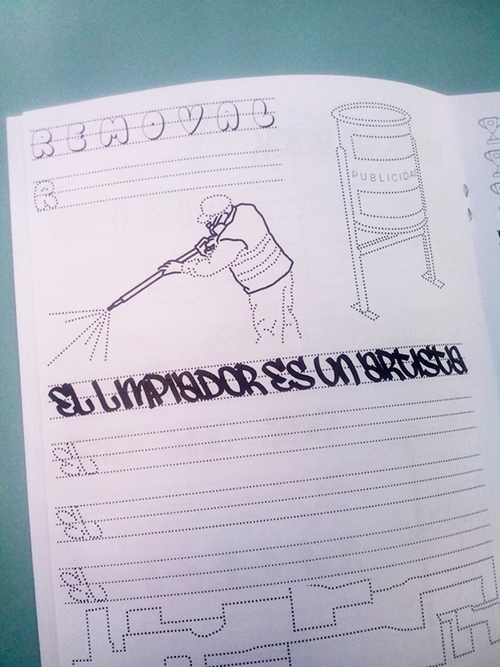 REMOVAL
PUBLICIDA
R
EL LIMPIADOR ES UN ARTISTA
EL
EL
EL